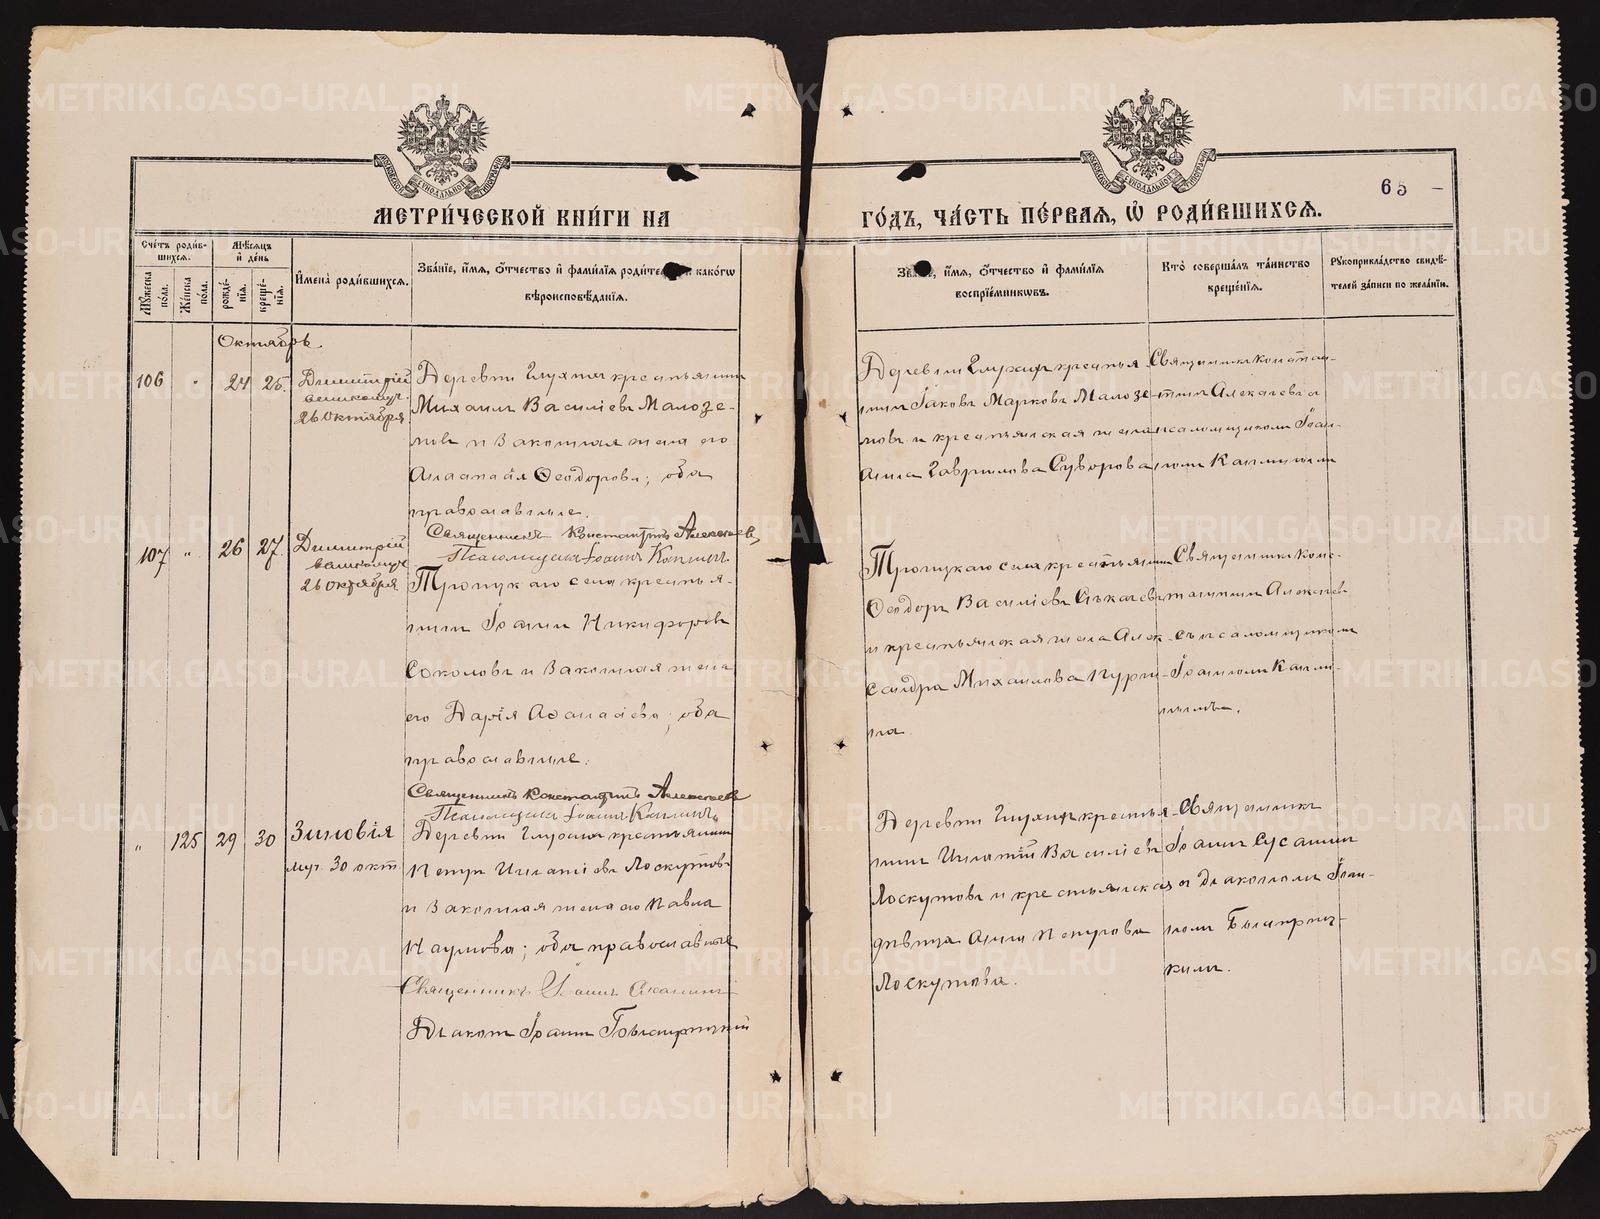 МЕТРИ́ЧЕСКОЙ КНИ́ГИ НА
ГО́ДЪ, ЧА́СТЬ ПЕ́РВАѦ, Ѡ҆ РОДИ́ВШИХСѦ.
65
Сче́тъ роди́в-
шихсѧ.
Мꙋ́жеска
по́ла.
Же́нска
по́ла.
Мѣ́сѧцъ
и҆ де́нь
рожде́-
нїѧ.
креще́-
нїѧ.
И҆мена̀ роди́вшихсѧ.
Зва́нїе, и҆́мѧ, ѻ҆́тчество и҆ фами́лїѧ и҆ како́гѡ
вѣроисповѣ́данїѧ.
и҆́мѧ, ѻ҆́тчество и҆ фами́лїѧ
воспрїе́мникѡвъ.
Кто̀ соверша́лъ та́инство
креще́нїѧ.
Рꙋкоприкла́дство свидѣ́-
телей за́писи по жела́нїи.
Октябрь.
106 " 24 25.
Димитрій
великомуч.
26 Октября
Деревни Глухихъ крестьянинъ
Михаилъ Василіевъ Малозе-
мовъ и законная жена его
Анастасія Ѳеодорова; оба
православные.
Священникъ Константинъ Алексѣевъ
Псаломщикъ Іоаннъ
Деревни Глухихъ крестья-
нинъ Іаковъ Марковъ Малозе-
мовъ и крестьянская жена
Анна Гаврилова Суворова
Священникъ Констан-
тинъ Алексѣевъ съ
псаломщикомъ Іоан-
номъ
107 " 26 27.
Димитрій
великомуч
26 октября
Троицкаго села крестья-
нинъ Іоаннъ Никифоровъ
Соколовъ и законная жена
его Дарія Аѳанасіева; оба
православные.
Священникъ Константинъ Алексѣевъ
Псаломщикъ Іоаннъ
Троицкаго села крестьянинъ
Ѳеодоръ Василіевъ
и крестьянская жена Алек-
сандра Михаилова
на
Священникъ Конс-
тантинъ Алексѣевъ
съ псаломщикомъ
Іоанномъ
" 125 29 30
Зиновія
муч. 30 окт.
Деревни Глухихъ крестьянинъ
Петръ Игнатіевъ Лоскутовъ
и законная жена его Павла
Наумова; оба православные
Священникъ Іоаннъ
Діаконъ Іоаннъ
Деревни Глухихъ крестья-
нинъ Игнатій Василіевъ
Лоскутовъ и крестьянская
дѣвица Анна Петрова
Лоскутова.
Священникъ
Іоаннъ
съ Діакономъ Іоан-
номъ
кимъ.
METRIKI.GASO-URAL.RU